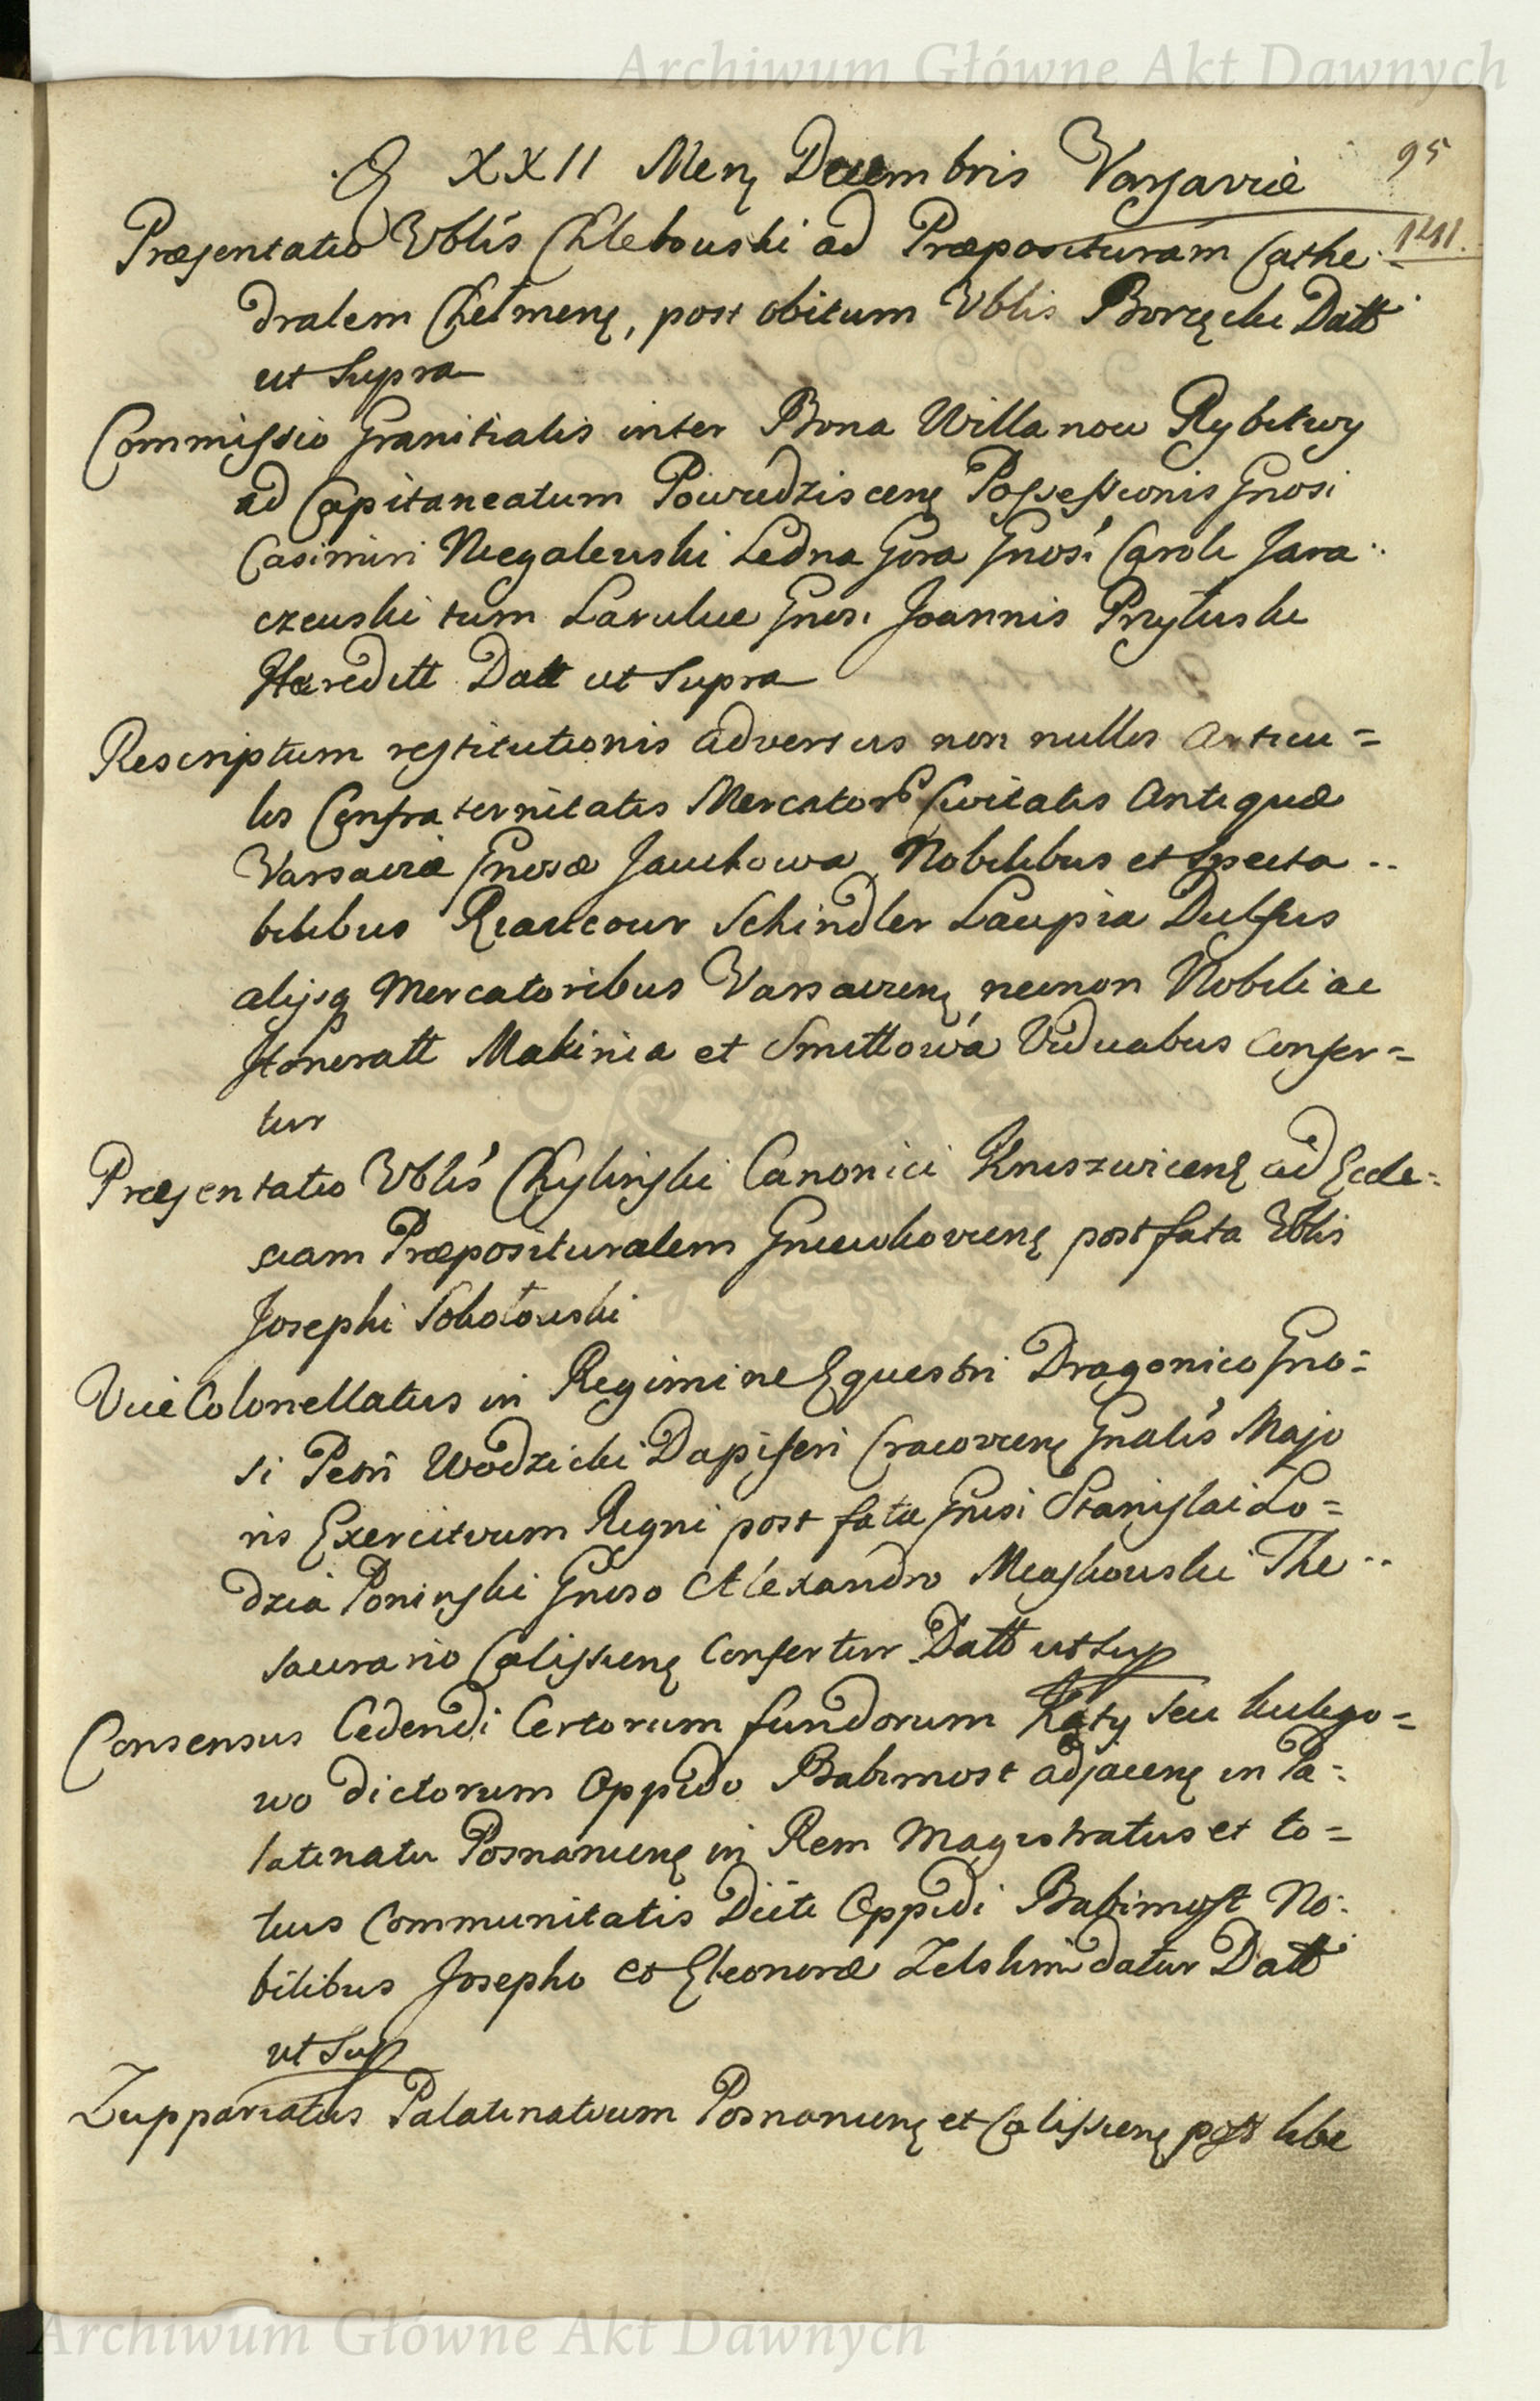 Archiwum Główne Akt Dawnych
95
D XXII Menş Decembris Varsaviæ
141.
Præsentatio Vblis Chlebowski ad Præposituram Cathe-
dralem Chelmenş, post obitum Vblis Borzęcki Datt
ut Supra
Commissio Granitialis inter Bona Willanow Rybitwy
ad Capitaneatum Powiedziscenş Possessionis Gnosi
Casimiri Niegalewski Ledna Gora Gnosi Caroli Jara-
czewski tum Latulice Gnosi Joannis Przyłuski
Hæreditt Datt ut Supra
Rescriptum restitutionis adversus non nullos Articu=
los Confraternitatis Mercatorũ Civitatis Antiquæ
Varsaviæ Gnosæ Jauchowa, Nobilibus et Specta-
bilibus Riaucour Schindler Laupia Dulfus
alijsq Mercatoribus Varsavienş necnon Nobili ac
Honoratt Makinia et Smittowa Viduabus Confer=
tur
Præsentatio Vblis Chylinski Canonici Kruszwicenş ad Eccle-
siam Præposituralem Gniewkovienş post fata Vblis
Josephi Sokołowski
Vice Colonellatus in Regimine Equestri Dragonico Gno=
si Petri Wodzicki Dapiferi Cracovienş Gnalis Majo
ris Exercituum Regni post fata Gnosi Stanislai Lo=
dzia Poninski Gnoso Alexandro Miaskowski The-
saurario Calissienş Confertur Datt ut Sup
Consensus Cedendi Certorum fundorum Kąty seu kuligo=
wo dictorum Oppido Babimost adjacenş in Pa-
latinatu Posnanienş in Rem Magistratus et to=
tius Communitatis Dicti Oppidi Babimost No-
bilibus Josepho et Eleonoræ Zelskim datur Datt
ut Sup
Zuppariatus Palatinatuum Posnanienş et Calissienş post libe
Archiwum Główne Akt Dawnych